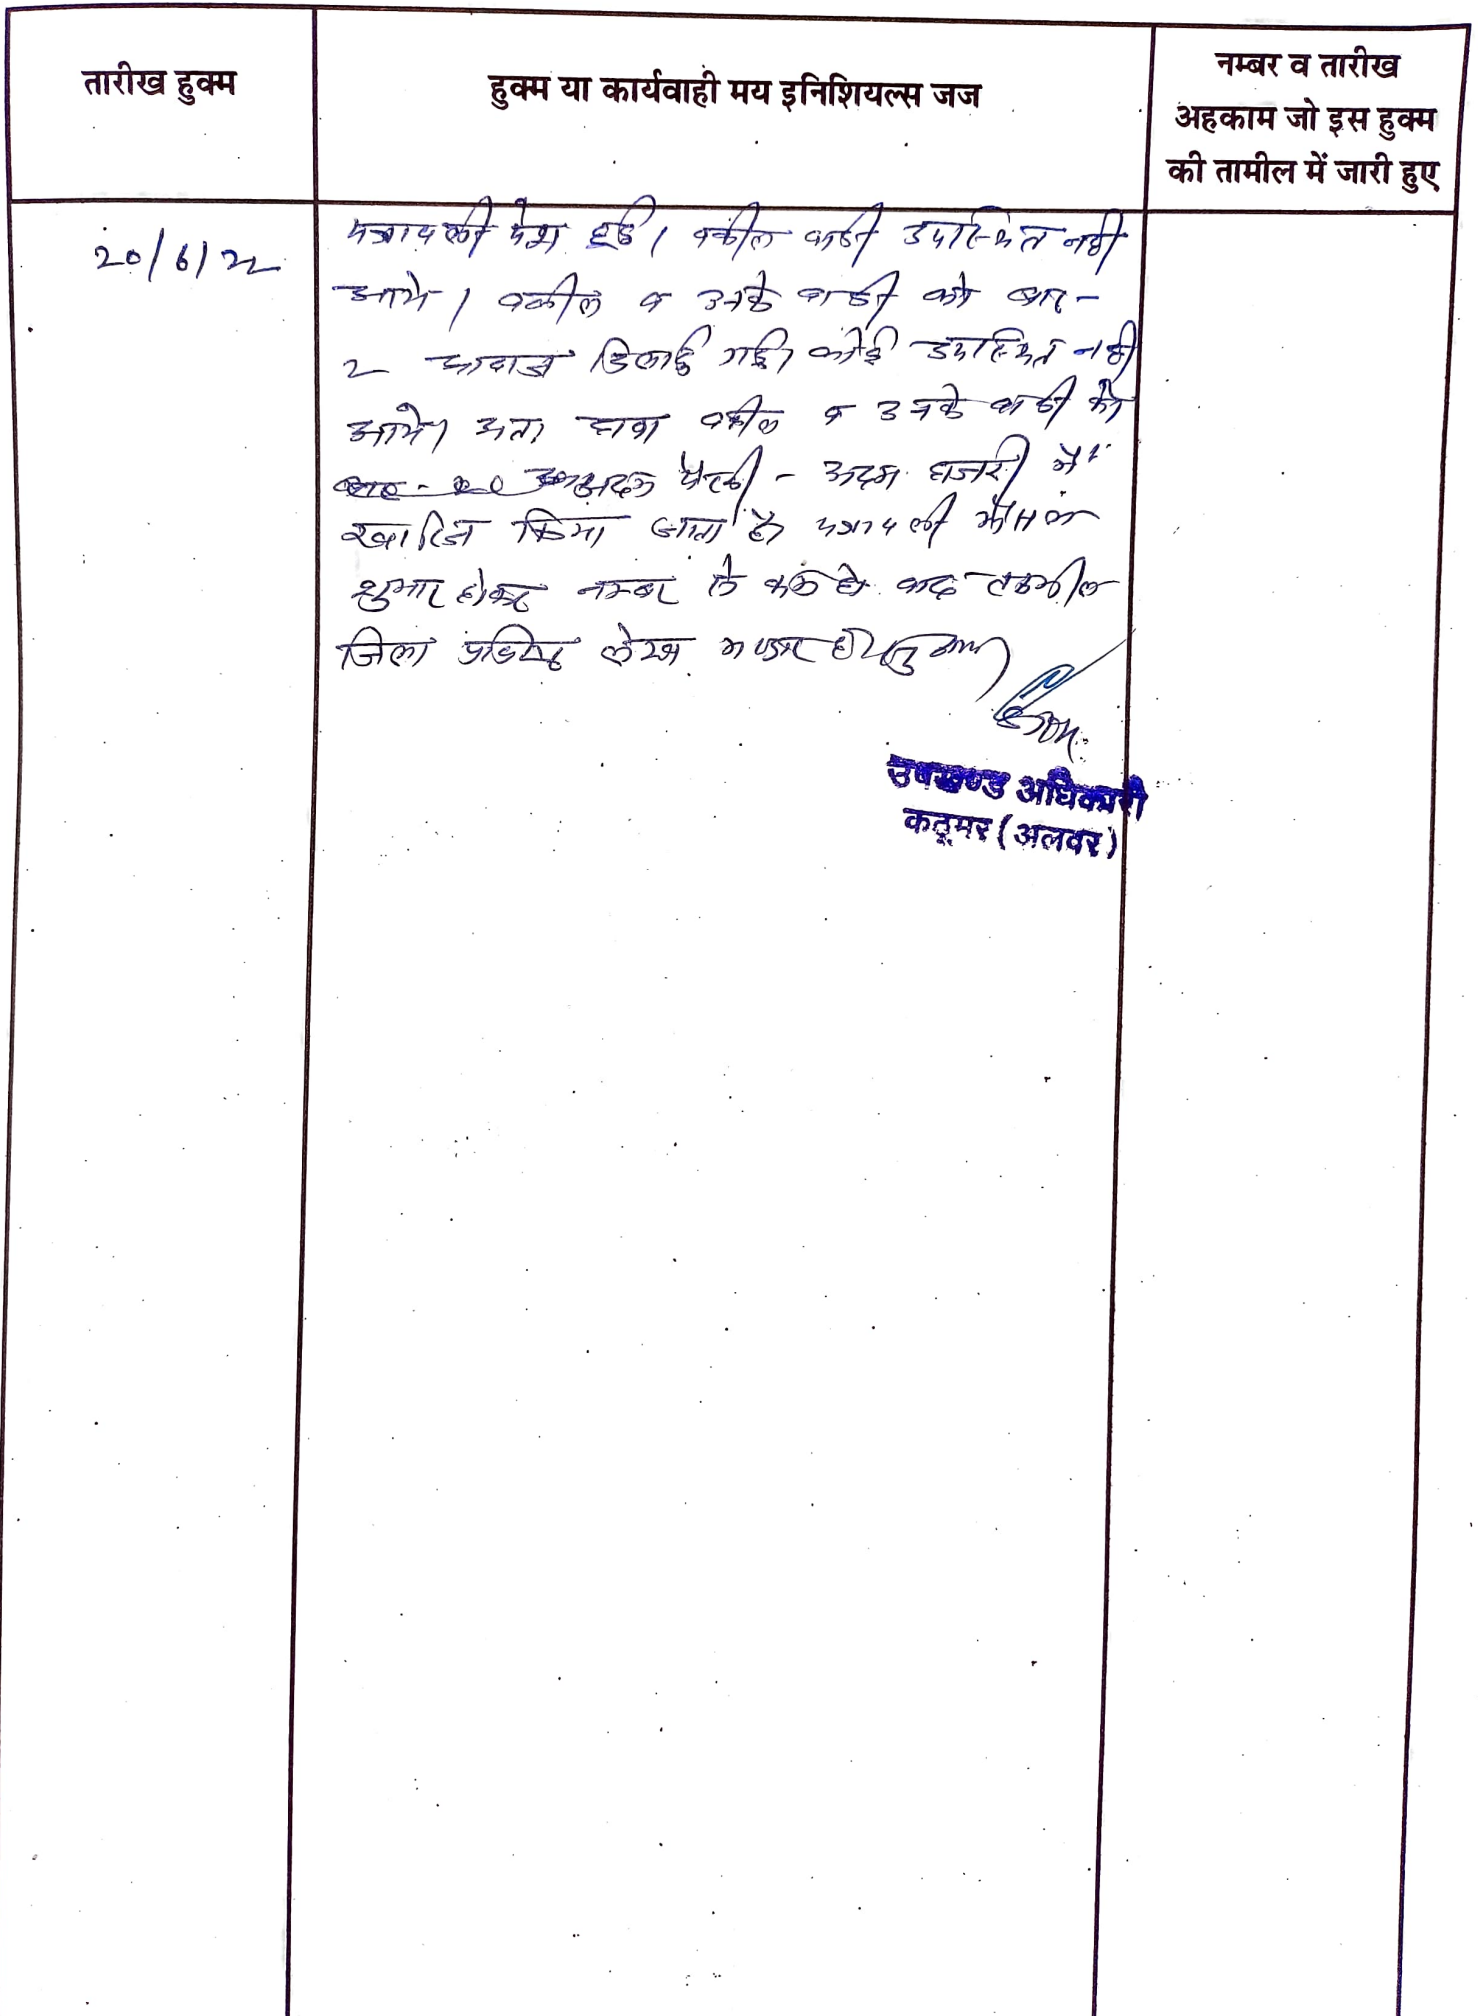 तारीख हुक्म
हुक्म या कार्यवाही मय इनिशियल्स जज
नम्बर व तारीख
अहकाम जो इस हुक्म
की तामील में जारी हुए
20/6/22
पत्रावली पेश हुई। वकील वादी उपस्थित नही
आये। वकील व उनके वादी को बार-
2 आवाज दिलाई गई। कोई उपस्थित नही
आये। अतः दावा वकील व उनके वादी के
अदम पैरवी - अदम हाजरी में
खारिज किया जाता है। पत्रावली फैसल
शुमार होकर नम्बर से कम हो वाद तकमील
जिला अभिलेख
उपखण्ड अधिकारी
कठूमर (अलवर)